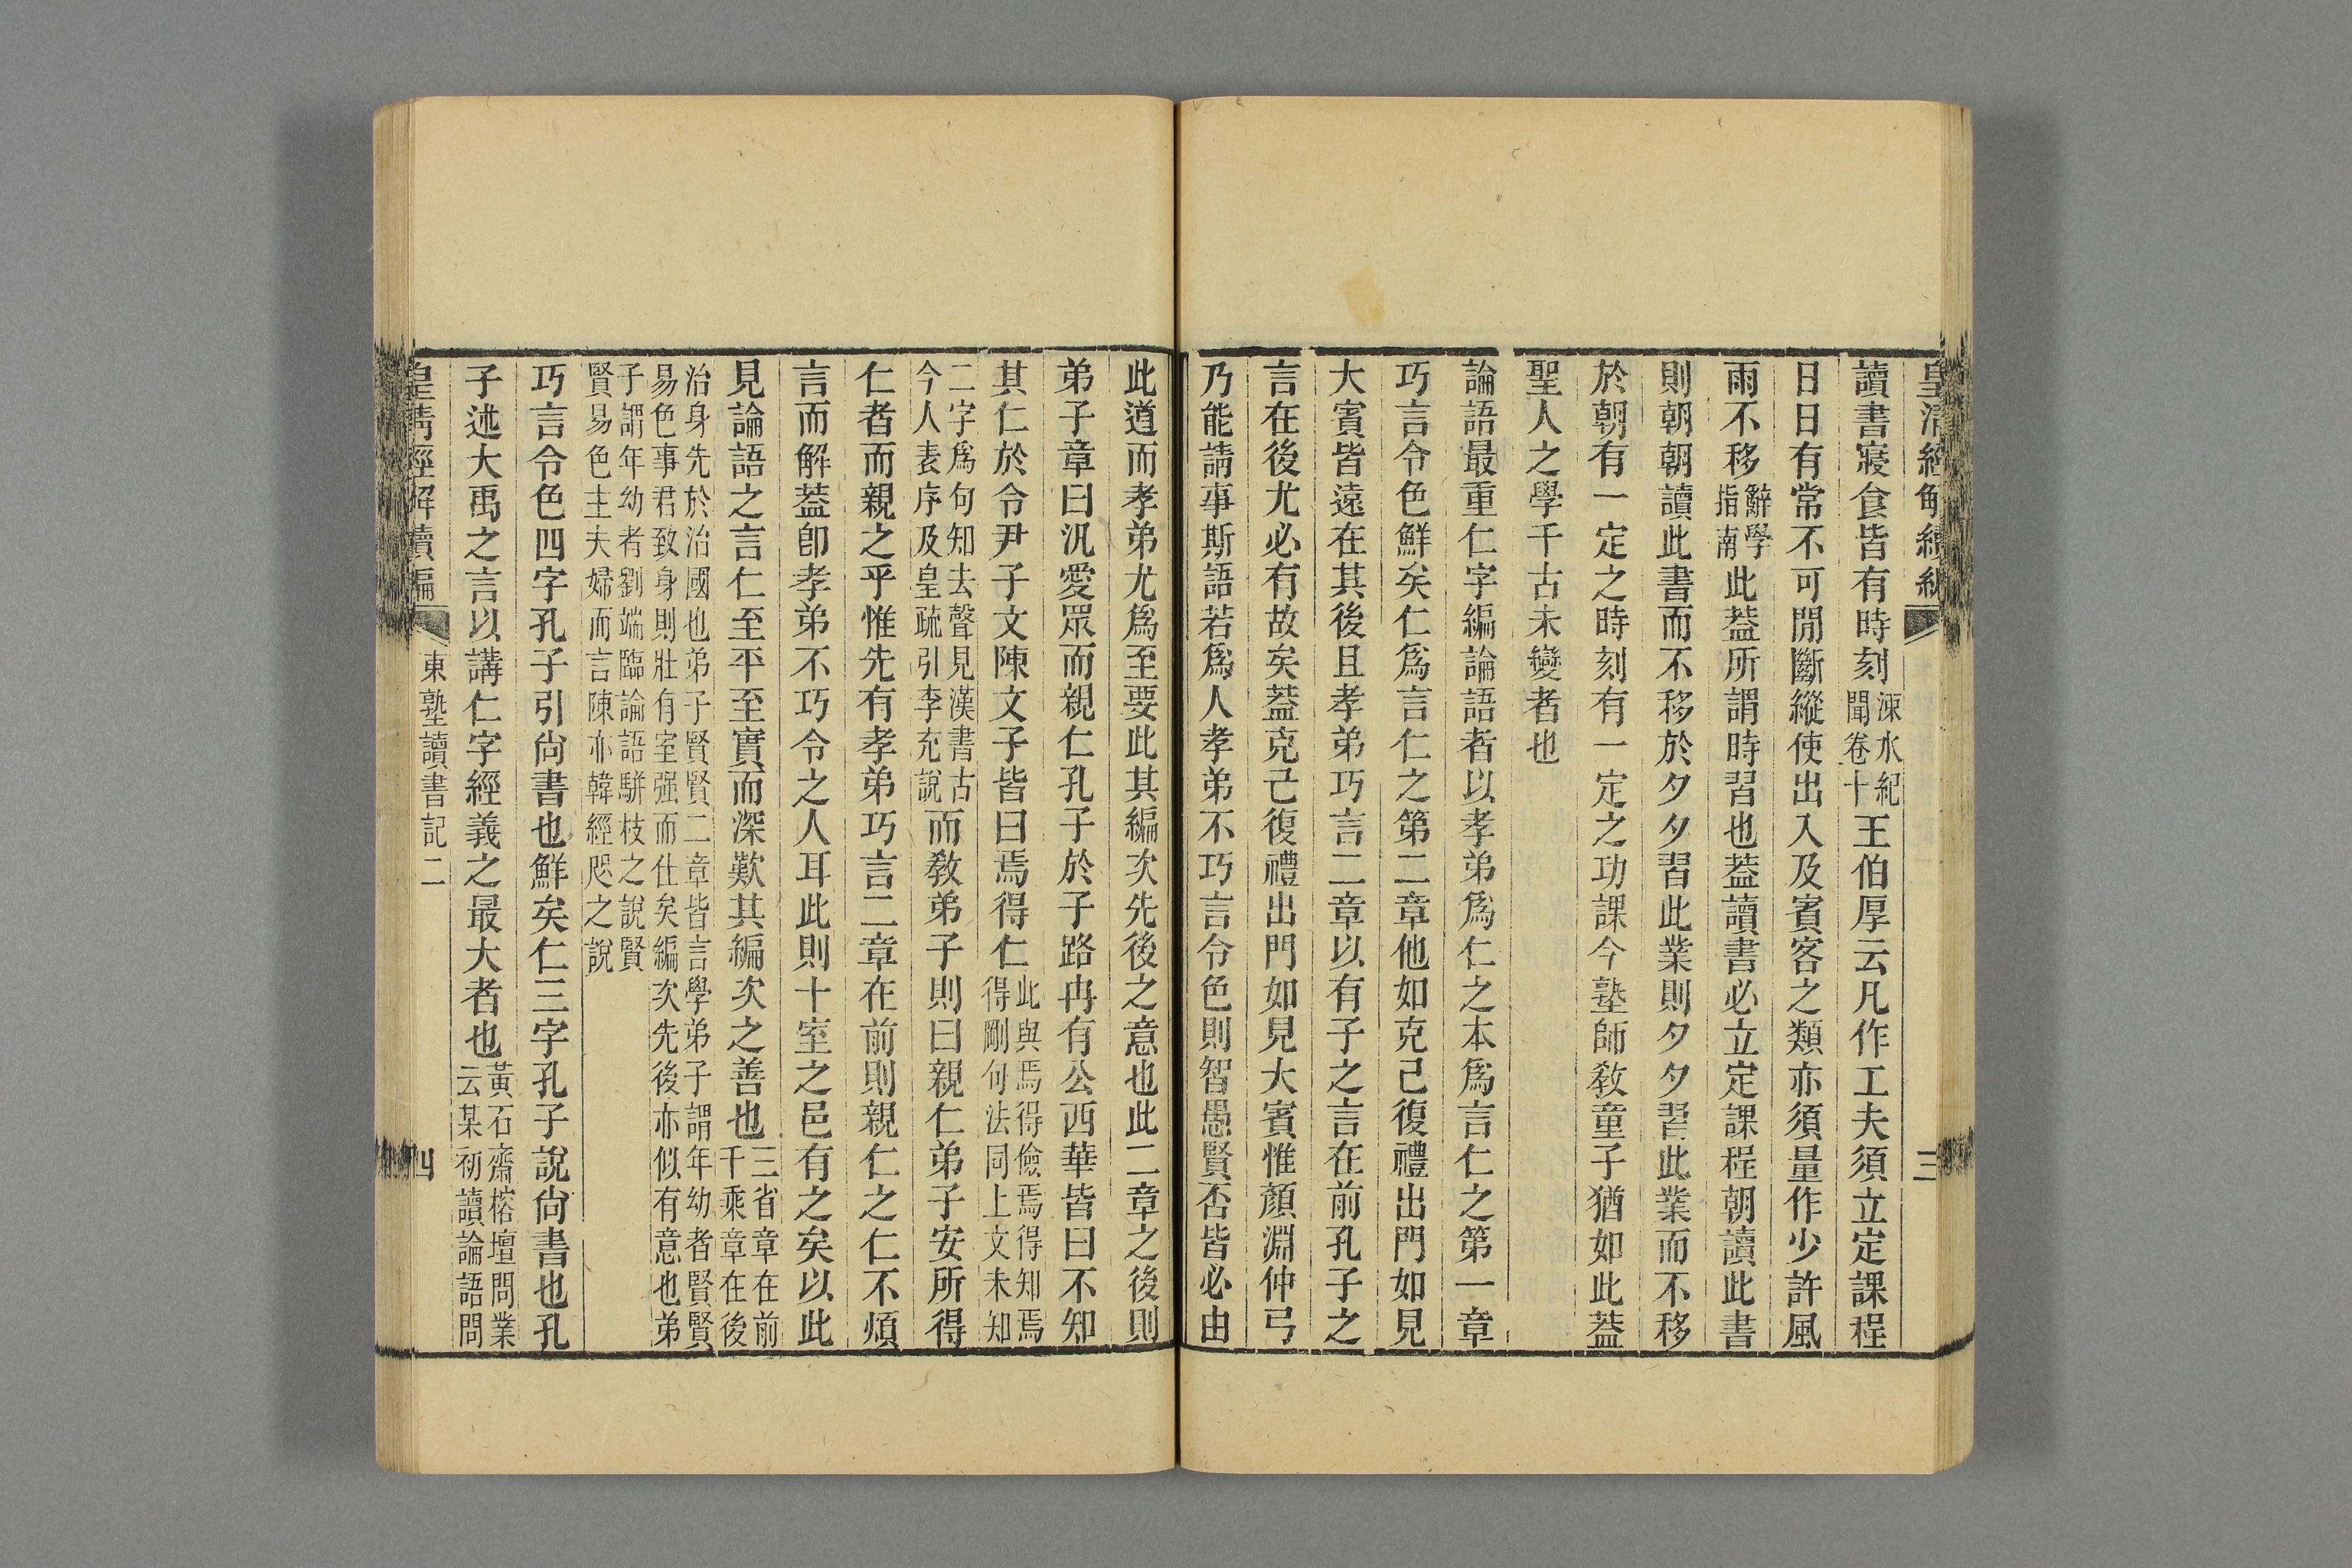 皇清經解續編
三
讀書寢食皆有時刻涑水紀聞卷十王伯厚云凡作工夫須立定課程
日日有常不可閒斷縱使出入及賓客之類亦須量作少許風
雨不移辭學指南此葢所謂時習也葢讀書必立定課程朝讀此書
則朝朝讀此書而不移於夕夕習此業則夕夕習此業而不移
於朝有一定之時刻有一定之功課今塾師敎童子猶如此葢
聖人之學千古未變者也
論語最重仁字編論語者以孝弟爲仁之本爲言仁之第一章
巧言令色鮮矣仁爲言仁之第二章他如克己復禮出門如見
大賓皆遠在其後且孝弟巧言二章以有子之言在前孔子之
言在後尤必有故矣葢克己復禮出門如見大賓惟顏淵仲弓
乃能請事斯語若爲人孝弟不巧言令色則智愚賢否皆必由
此道而孝弟尤爲至要此其編次先後之意也此二章之後則
弟子章曰汎愛眾而親仁孔子於子路冉有公西華皆曰不知
其仁於令尹子文陳文子皆曰焉得仁此與焉得儉焉得知焉得剛句法同上文未知
二字爲句知去聲見漢書古今人表序及皇疏引李充說而敎弟子則曰親仁弟子安所得
仁者而親之乎惟先有孝弟巧言二章在前則親仁之仁不煩
言而解葢卽孝弟不巧令之人耳此則十室之邑有之矣以此
見論語之言仁至平至實而深歎其編次之善也三省章在前千乘章在後
治身先於治國也弟子賢賢二章皆言學弟子謂年幼者賢賢易色事君致身則壯有室强而仕矣編次先後亦似有意也弟
子謂年幼者劉端臨論語駢枝之說賢賢易色主夫婦而言陳亦韓經咫之說
巧言令色四字孔子引尙書也鮮矣仁三字孔子說尙書也孔
子述大禹之言以講仁字經義之最大者也黃石齋榕壇問業云某初讀論語問
皇淸經解續編
東塾讀書記二
四